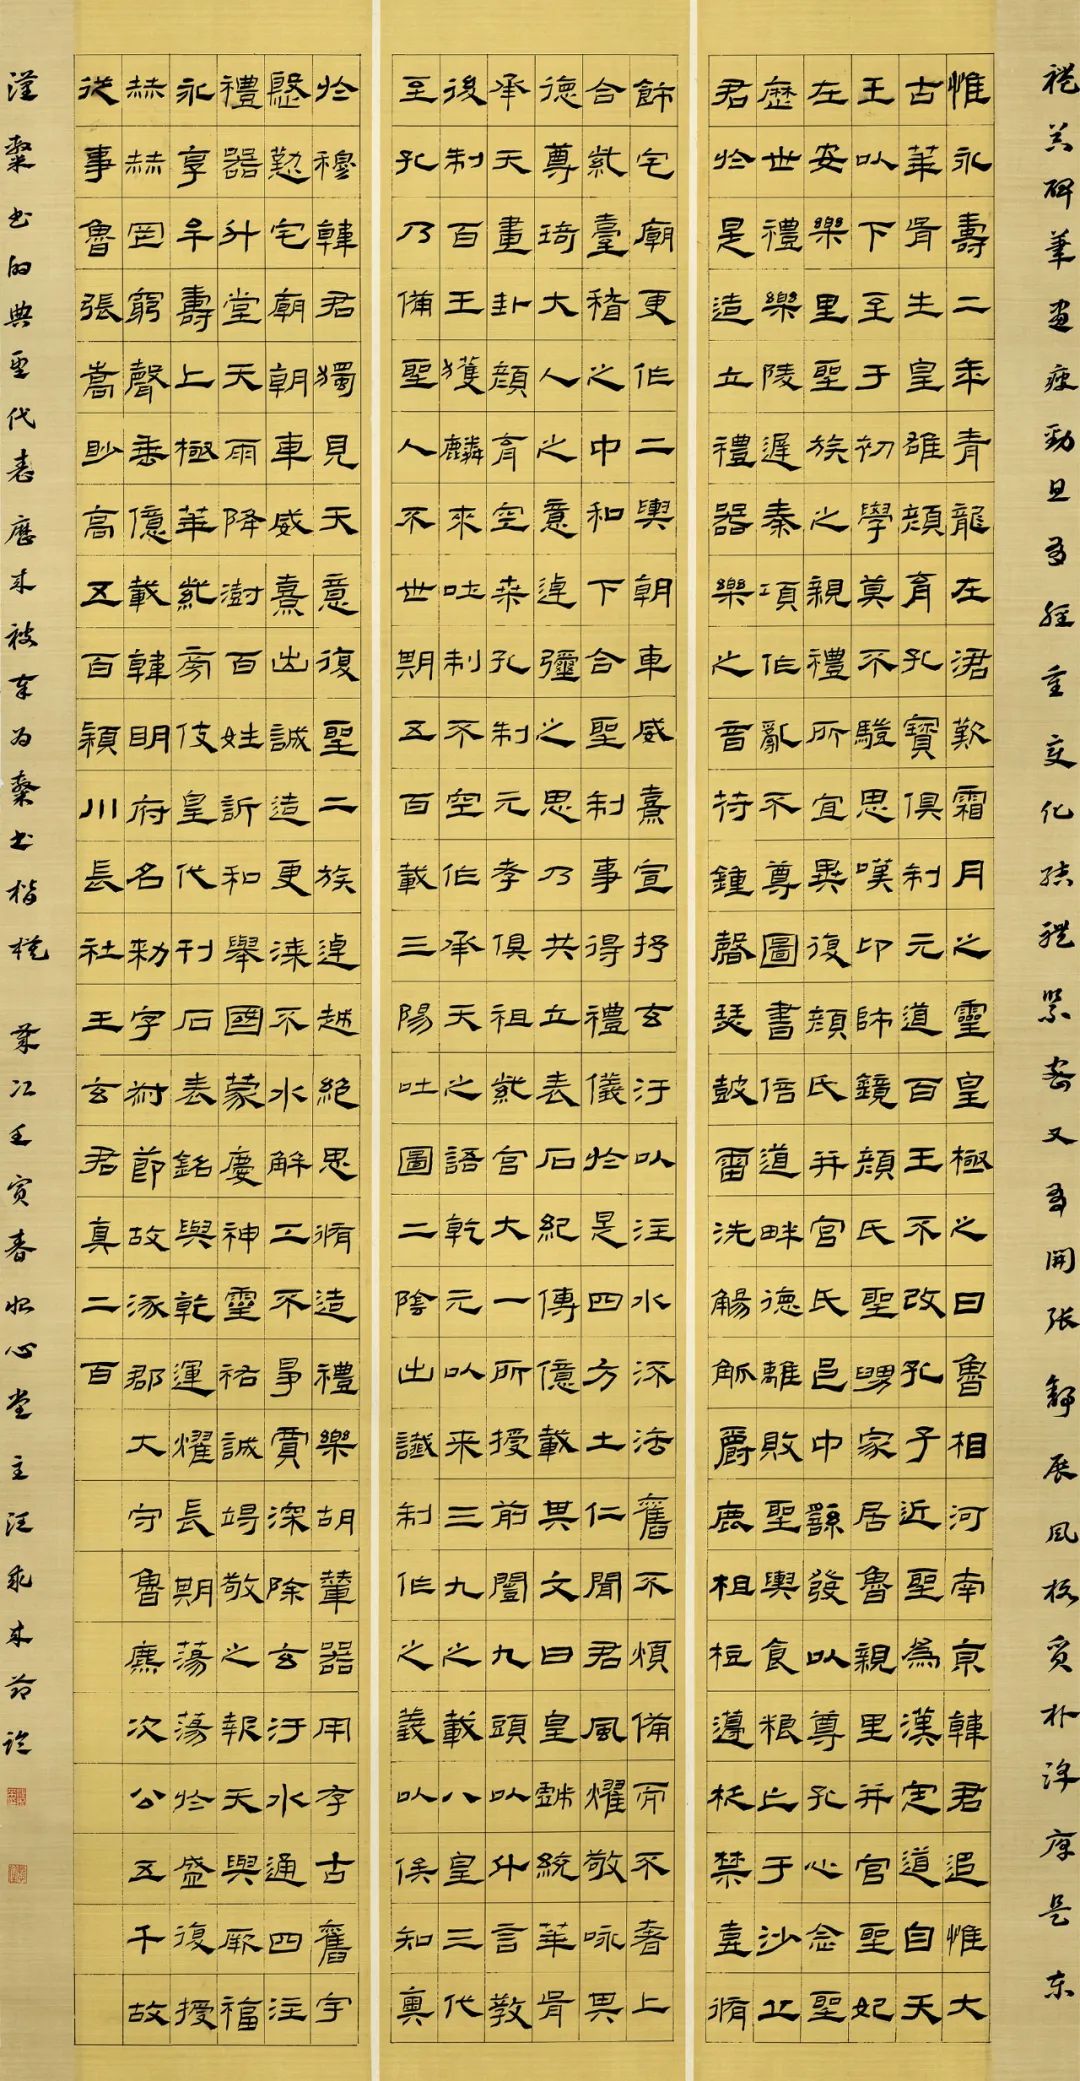 礼器碑筆畫瘦勁且多輕重变化结體緊密又多開張舒展風格質朴淳厚是东
惟永壽二年青龍在涒歎霜月之靈皇極之日魯相河南京韓君追惟大
古華胥生皇雄顏育孔寶俱制元道百王不改孔子近聖為漢定道自天
王以下至于初學莫不驥思嘆卬師鏡顏氏聖舅家居魯親里并官聖妃
在安樂里聖族之親禮所宜異復顏氏并官氏邑中繇發以尊孔心念聖
歷世禮樂陵遲秦項作亂不尊圖書倍道畔德離敗聖輿食粮亡于沙丘
君於是造立禮器樂之音苻鍾磬瑟鼓雷洗觴觚爵鹿柤梪籩柉禁壺脩
飾宅廟更作二輿朝車威熹宣抒玄汙以注水流法舊不煩備而不奢上
合紫臺稽之中和下合聖制事得禮儀於是四方土仁聞君風燿敬咏其
德尊琦大人之意逴彌之思乃共立表石紀傳億載其文曰皇戲統華胥
承天畫卦顏育空桑孔制元孝俱祖紫宮大一所授前闓九頭以什言教
後制百王獲麟來吐制不空作承天之語乾元以來三九之載八皇三代
至孔乃備聖人不世期五百載三陽吐圖二陰出讖制作之義以俟知奧
於穆韓君獨見天意復聖二族逴越絕思脩造禮樂胡輦器用存古舊宇
慇懃宅廟朝車威熹出誠造更漆不水解工不爭賈深除玄汙水通四注
禮器升堂天雨降澍百姓訢和舉國蒙慶神靈祐誠竭敬之報天與厥福
永享牟壽上極華紫旁伎皇代刊石表銘與乾運燿長期蕩蕩於盛復授
赫赫罔窮聲垂億載韓明府名勑字叔節故涿郡大守魯廉次公五千故
從事魯張嵩眇高五百潁川長社王玄君真二百
漢隸书的典型代表歷来被奉为隸书楷模 歲次壬寅春 心堂主汪来節临